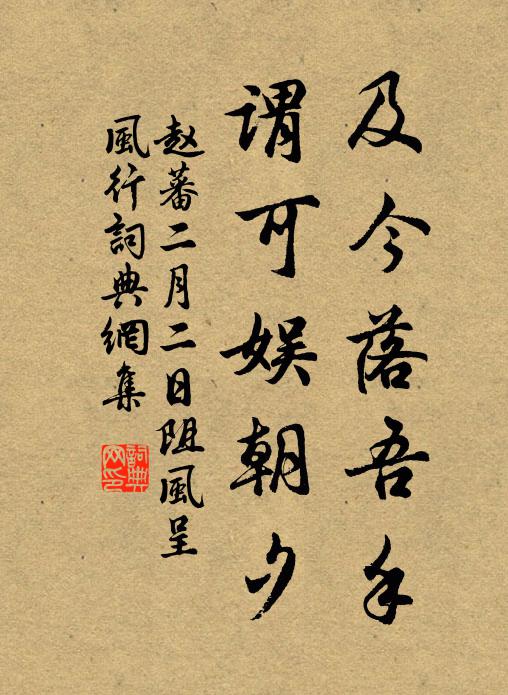 及今落吾手
謂可娱朝夕
赵蕃二月二日阻風呈
風行詞典網集
詞典网印